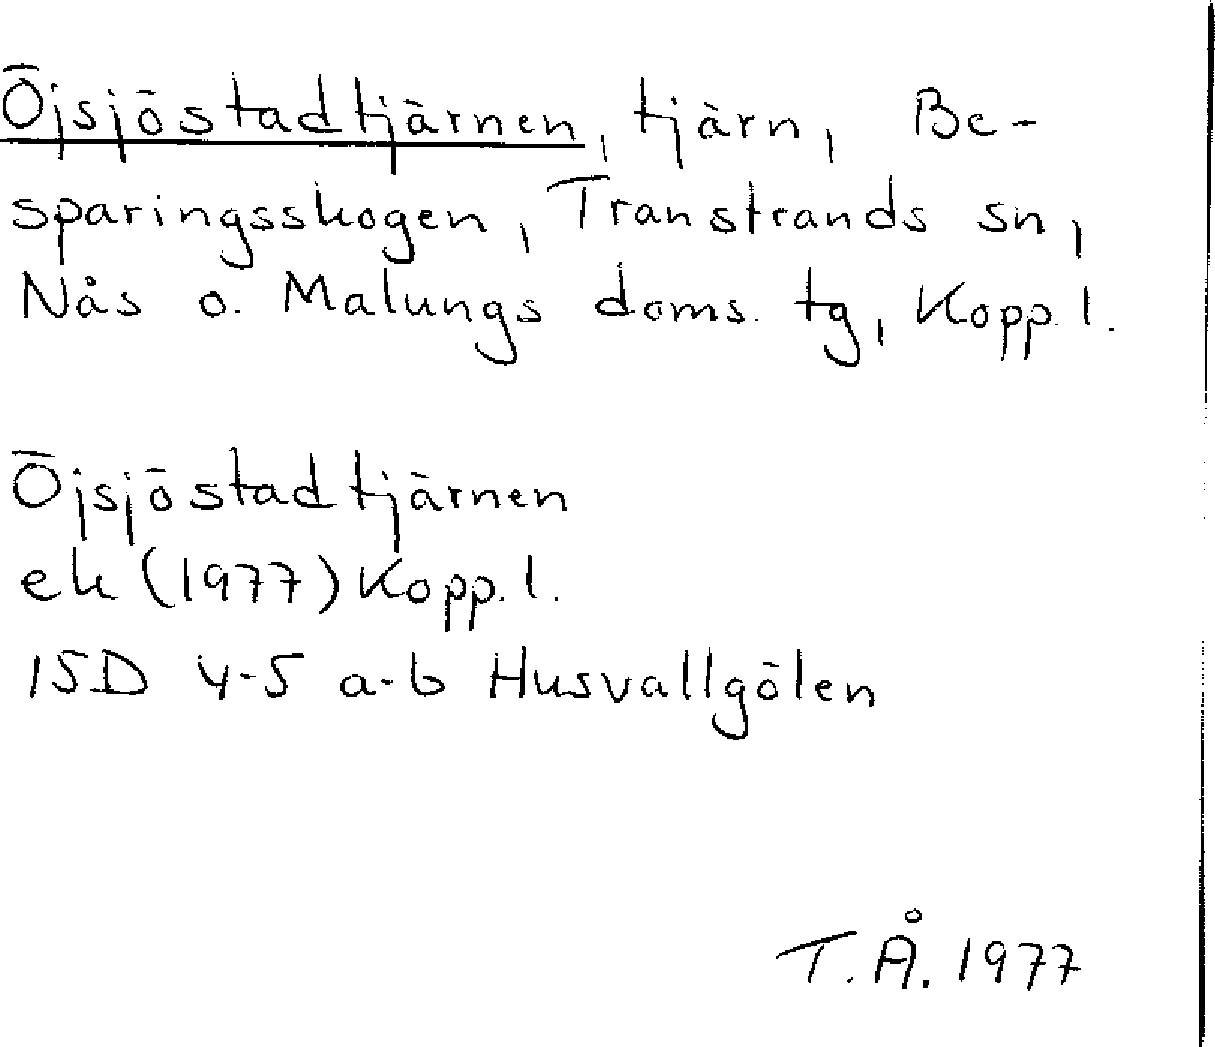 Öjsjöstadtjärnen, tjärn, Be-
sparingsskogen, Transtrands sn,
Nås o. Malungs doms. tg, Kopp. l.
Öjsjöstadtjärnen
ek (1977) Kopp. l.
15D 4-5 a-b Husvallgölen
T. Å. 1977